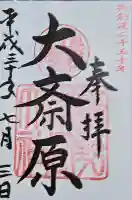 奉拝
大斎原
平成三十年七月三日